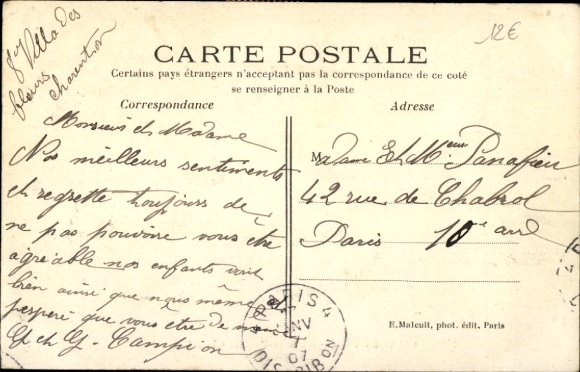 8 Villa des
fleurs
charenton
12€
CARTE POSTALE
Certains pays étrangers n'acceptant pas la correspondance de ce coté
se renseigner à la Poste
Correspondance
Adresse
Monsieur et Madame
Nos meilleurs sentiments
et regrette toujours de
ne pas pouvoire vous être
agréable nos enfants vont
bien ainsi que nous même
j'espère que vous être de même
G et G. Campion
Madame Et Mr Panafieu
42 rue de Chabrol
Paris 10e arr
PARIS 4
JANV
07
DISTRIBON
E. Malcuit, phot. édit. Paris